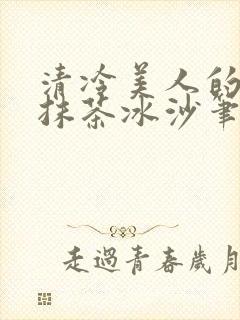 清冷美人的
抹茶冰沙筆
走過青春歲月